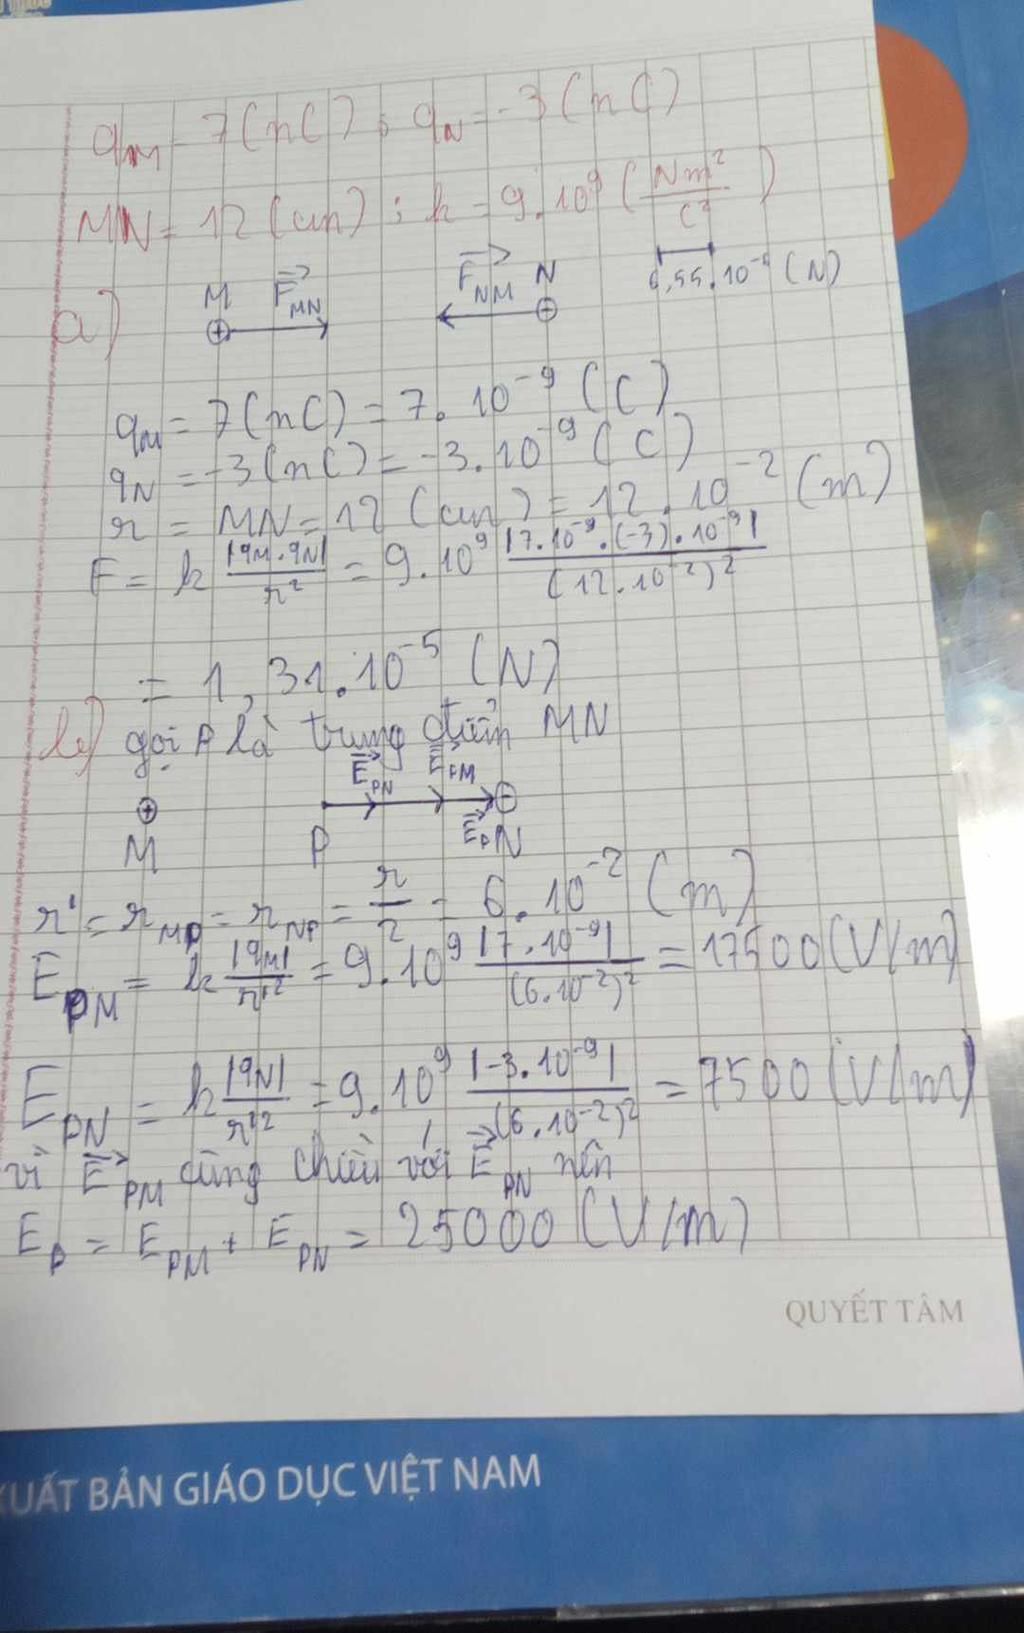 q_M = 7 (nC) ; q_N = -3 (nC)
MN = 12 (cm) ; k = 9.10^9 (Nm²/C²)
a) M ⊕ F_MN→ F_NM→ N ⊕ 6,55.10^-6 (N)
q_M = 7 (nC) = 7.10^-9 (C)
q_N = -3 (nC) = -3.10^-9 (C)
r = MN = 12 (cm) = 12.10^-2 (m)
F = k |q_M.q_N|/r² = 9.10^9 |7.10^-9.(-3).10^-9|/(12.10^-2)²
= 1,31.10^-5 (N)
b) gọi P là trung điểm MN
E_PN→ E_PM→
⊕ ⊖
M P E_P→ N
r' = r_MP = r_NP = r/2 = 6.10^-2 (m)
E_PM = k |q_M|/r'² = 9.10^9 |7.10^-9|/(6.10^-2)² = 17500 (V/m)
E_PN = k |q_N|/r'² = 9.10^9 |-3.10^-9|/(6.10^-2)² = 7500 (V/m)
vì E_PM→ cùng chiều với E_PN→ nên
E_P = E_PM + E_PN = 25000 (V/m)
QUYẾT TÂM
XUẤT BẢN GIÁO DỤC VIỆT NAM